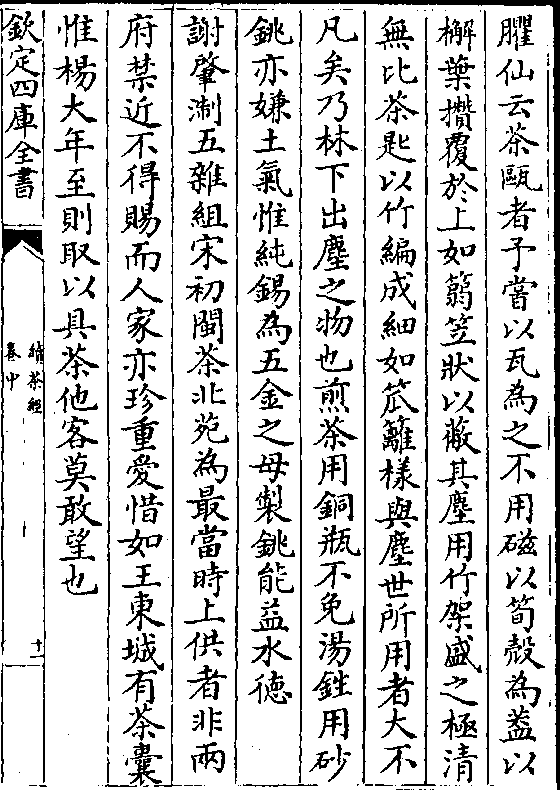 臞仙云茶甌者予嘗以瓦為之不用磁以筍殼為蓋以
檞葉攢覆於上如篛笠狀以蔽其塵用竹架盛之極清
無比茶匙以竹編成細如笊籬樣與塵世所用者大不
凡矣乃林下出塵之物也煎茶用銅瓶不免湯鉎用砂
銚亦嫌土氣惟純錫為五金之母製銚能益水徳
謝肇淛五雜組宋初閩茶北苑為最當時上供者非兩
府禁近不得賜而人家亦珍重愛惜如王東城有茶囊
惟楊大年至則取以具茶他客莫敢望也
欽定四庫全書
續茶經
卷中
十一